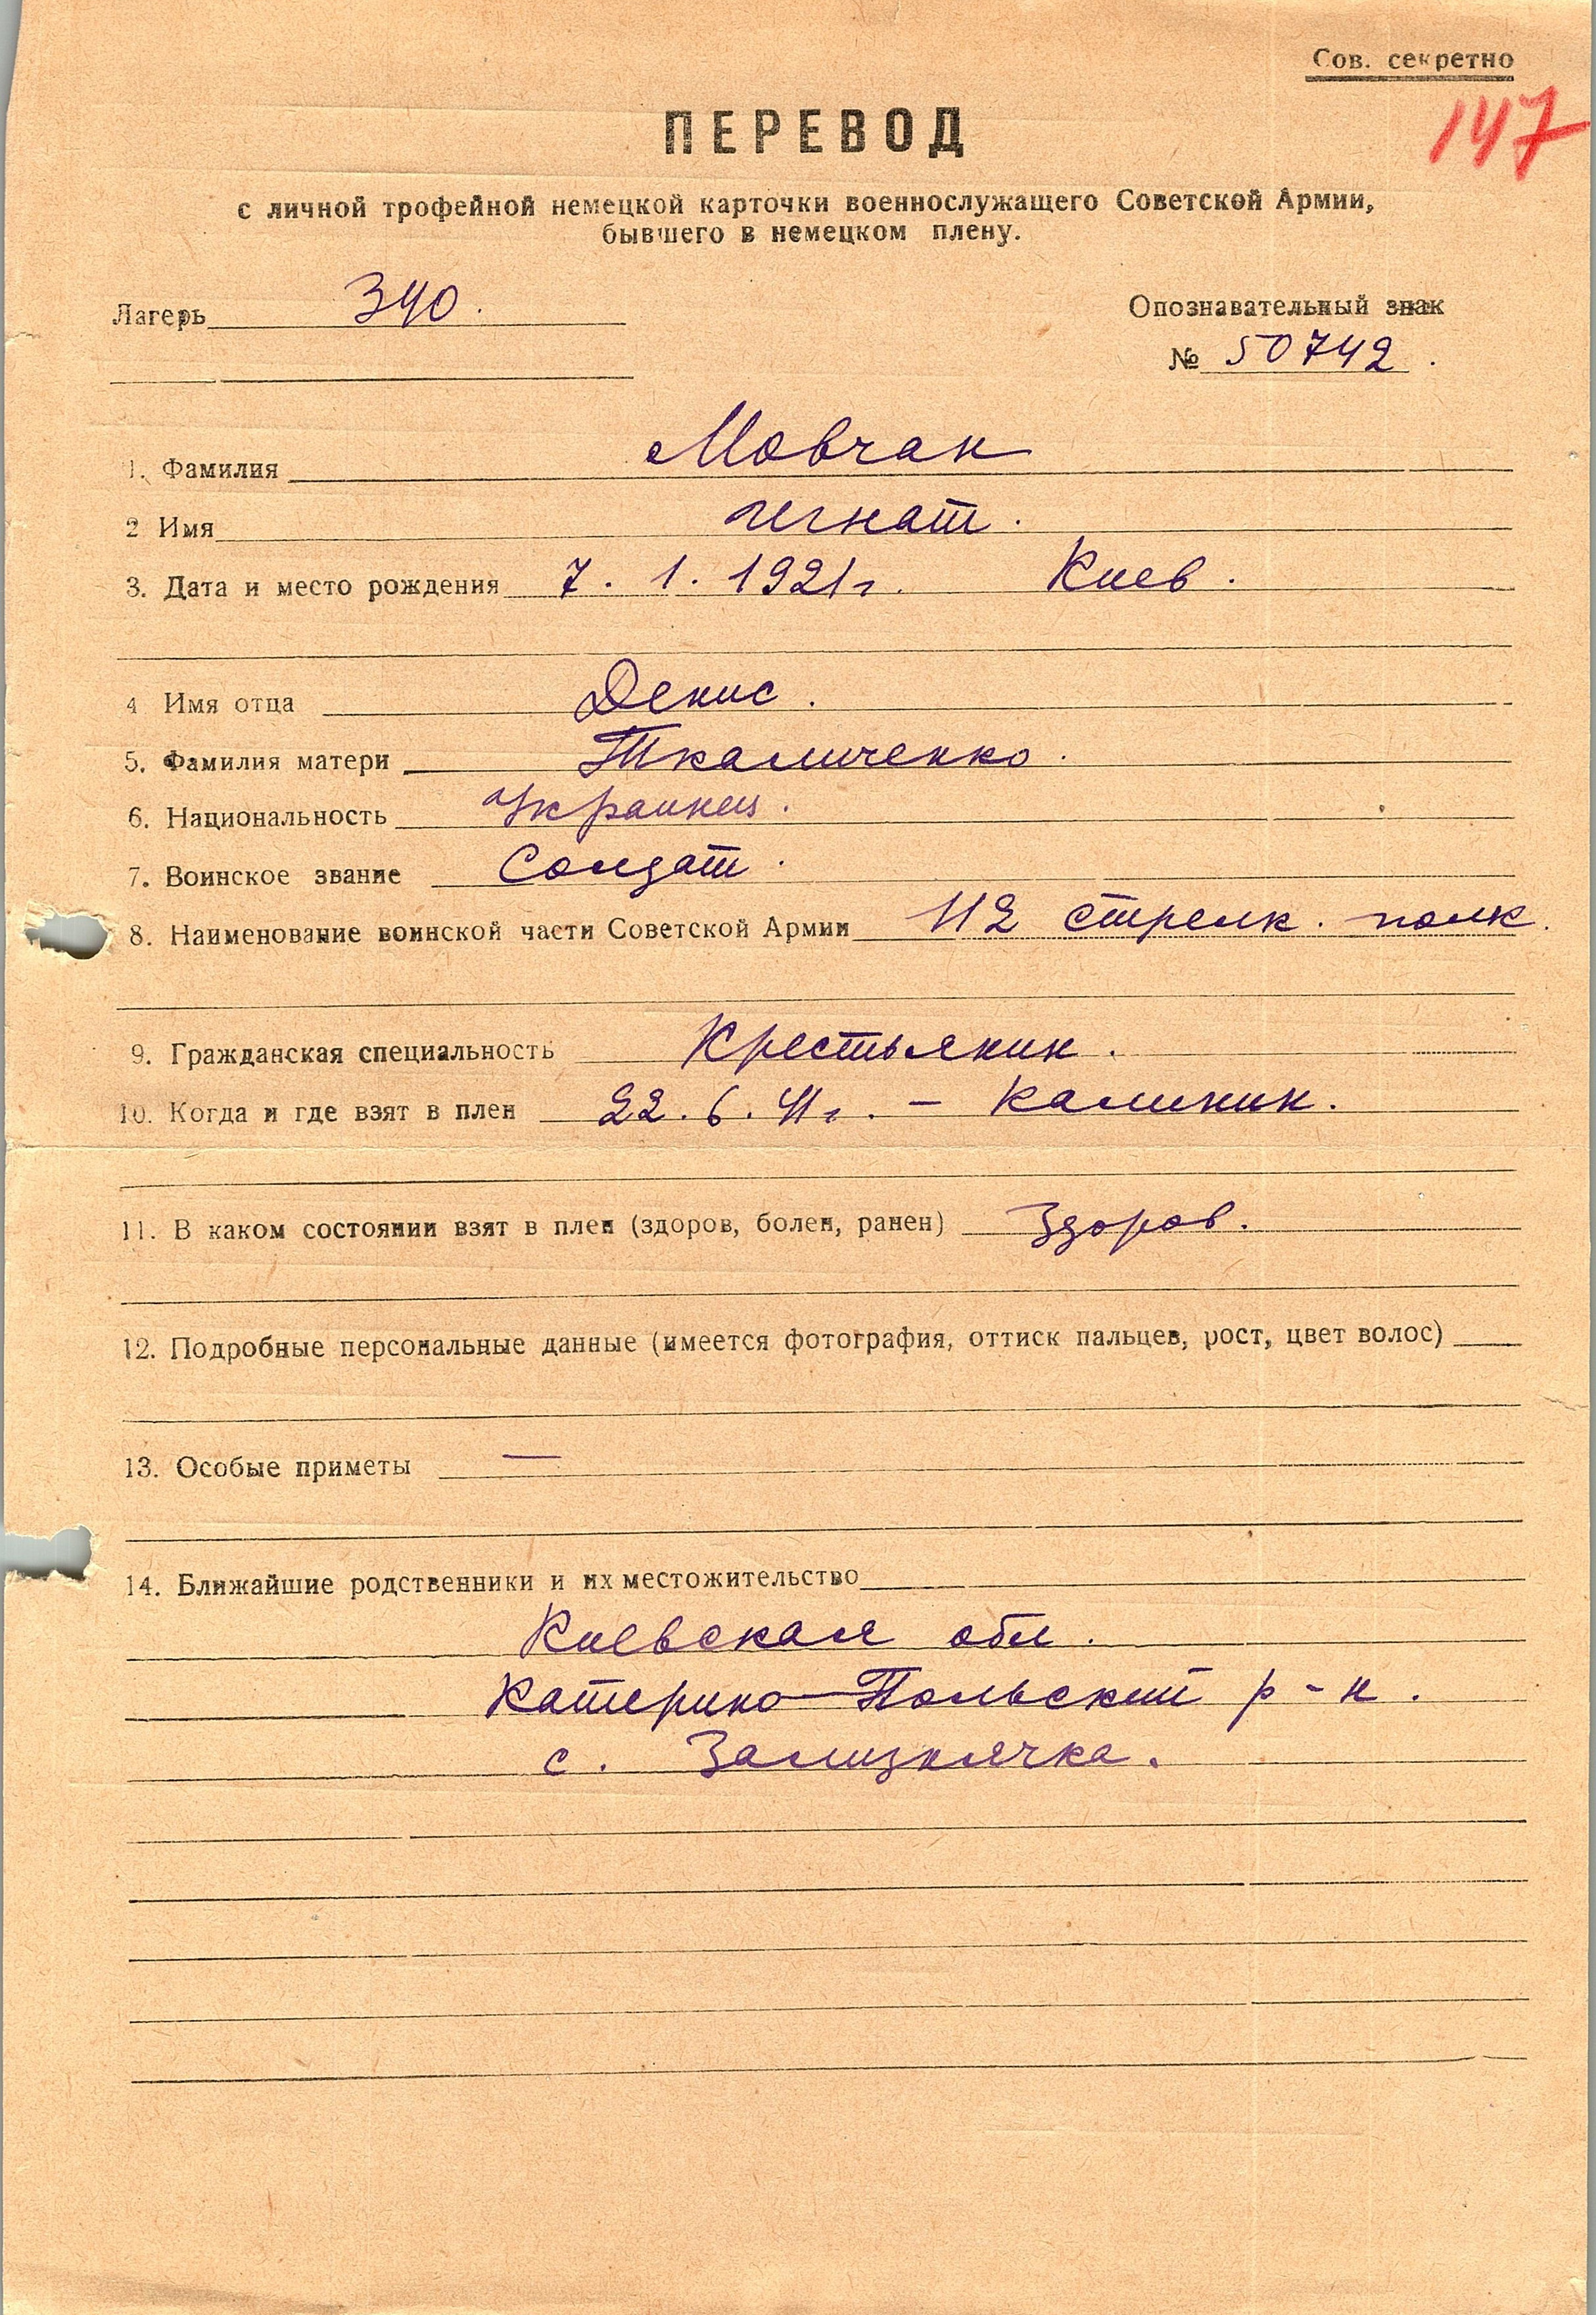 Сов. секретно
147
ПЕРЕВОД
с личной трофейной немецкой карточки военнослужащего Советской Армии,
бывшего в немецком плену.
Лагерь 340.
Опознавательный знак
№ 50742.
1. Фамилия Мовчан
2 Имя Игнат.
3. Дата и место рождения 7. 1. 1921г. Киев.
4 Имя отца Денис.
5. Фамилия матери Ткаличенко.
6. Национальность Украинец.
7. Воинское звание Солдат.
8. Наименование воинской части Советской Армии 112 стрелк. полк.
9. Гражданская специальность Крестьянин.
10. Когда и где взят в плен 22. 6. 41г. – Калинин.
11. В каком состоянии взят в плен (здоров, болен, ранен) Здоров.
12. Подробные персональные данные (имеется фотография, оттиск пальцев, рост, цвет волос)
13. Особые приметы —
14. Ближайшие родственники и их местожительство
Киевская обл.
Катерино-Польский р-н.
с. Зализнячка.